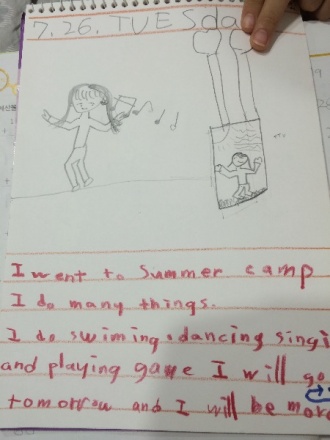 7.26.TUESda
I went to Summer camp
I do many things.
I do swiming, dancing singi
and playing game I will go
tomorrow and I will be more